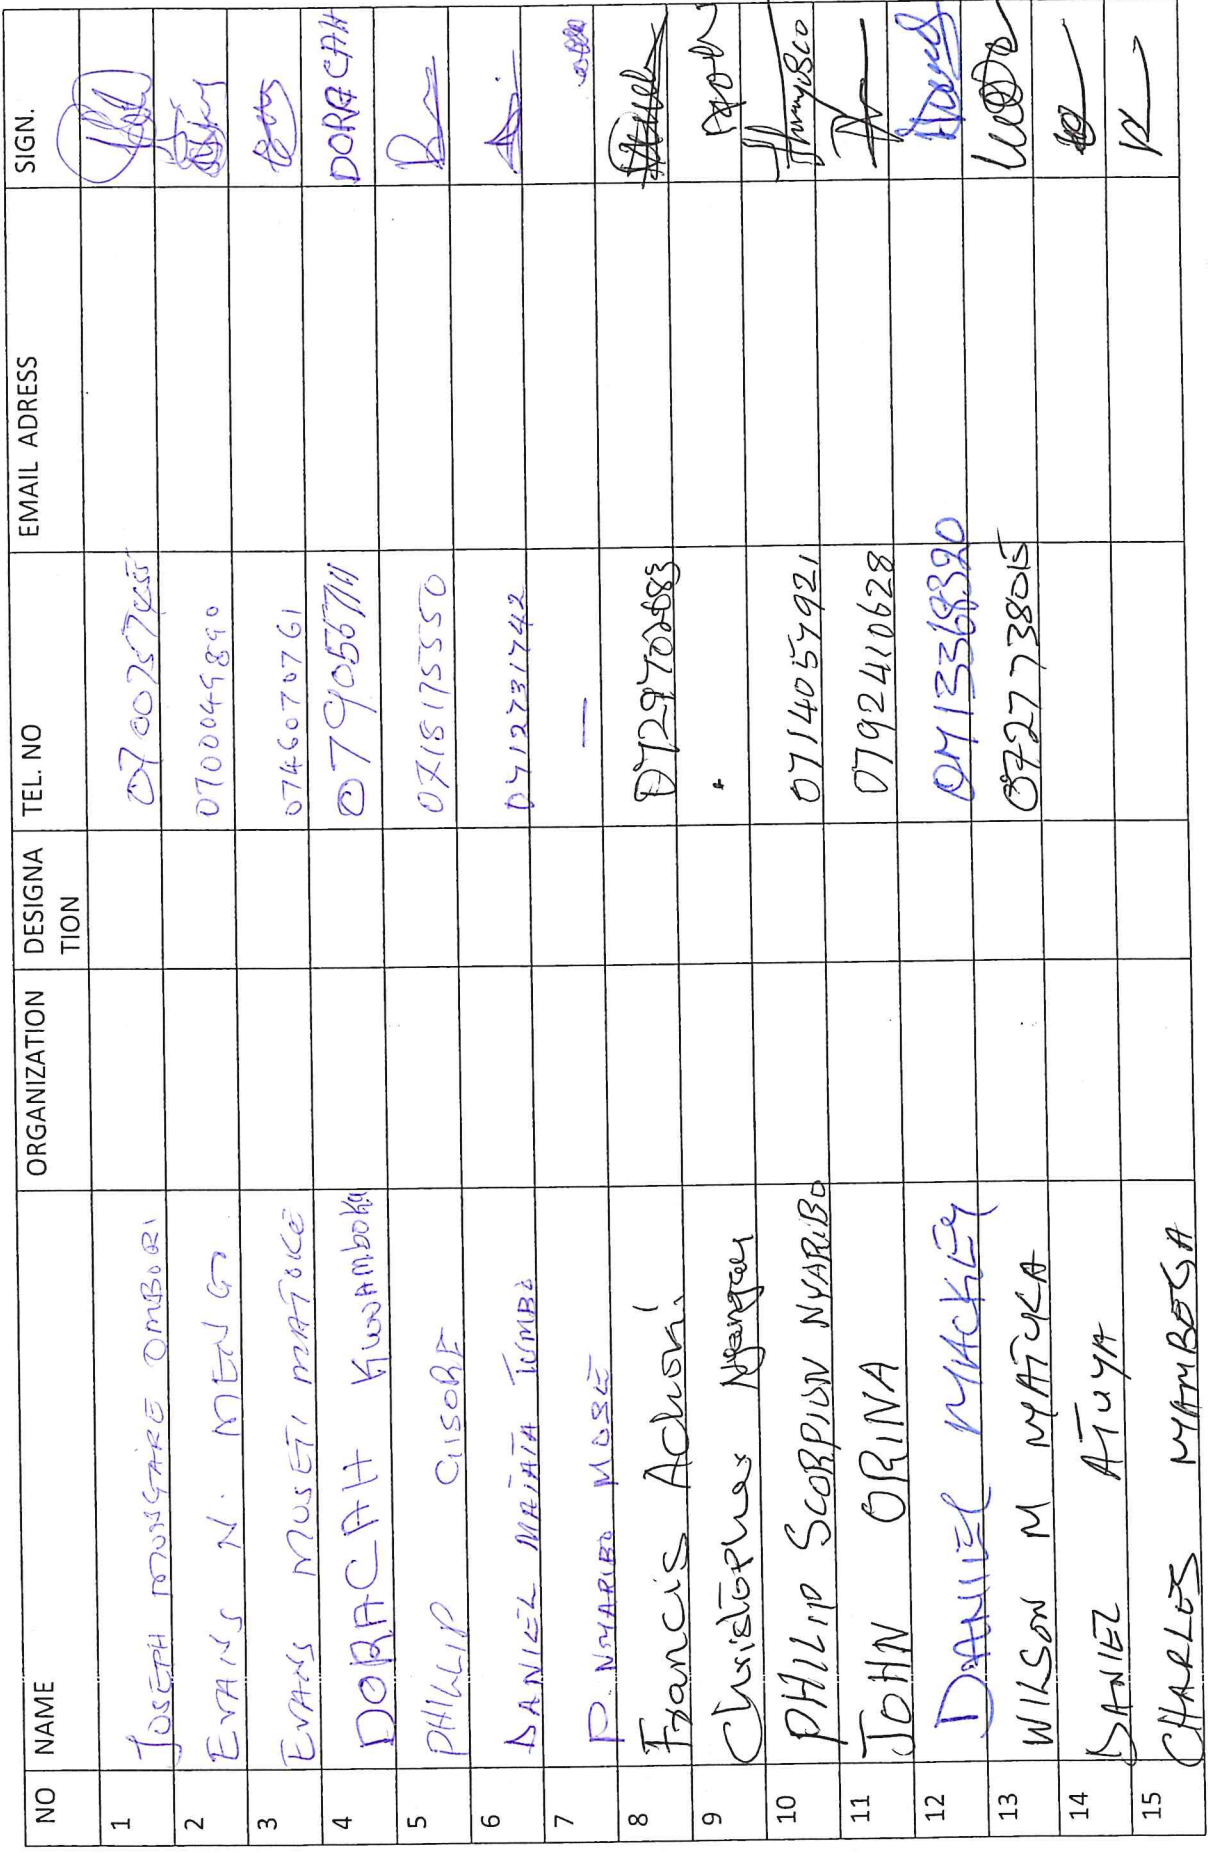 NO NAME ORGANIZATION DESIGNA TION TEL. NO EMAIL ADRESS SIGN.
1 JOSEPH MONGARE OMBORI
2 EVANS N. MENG 0700049890
3 EVANS MUSETI MATOKE 0746070761
4 DORACAH KWAMBOKA 0790556711 DORACAH
5 PHILLIP GISORE 0718175550
6 DANIEL MAINA TUMBO 0712731742
7 P. NYARIBO MOSE —
8 Francis Achoki
9 Christopher
10 PHILIP SCORPION NYARIBO 0714057921
11 JOHN ORINA 0792410628
12 DANIEL MACKLEY 0713368320
13 WILSON M NYATUKA 0727738015
14 DANIEL ATUYA
15 CHARLES NYAMBEGA